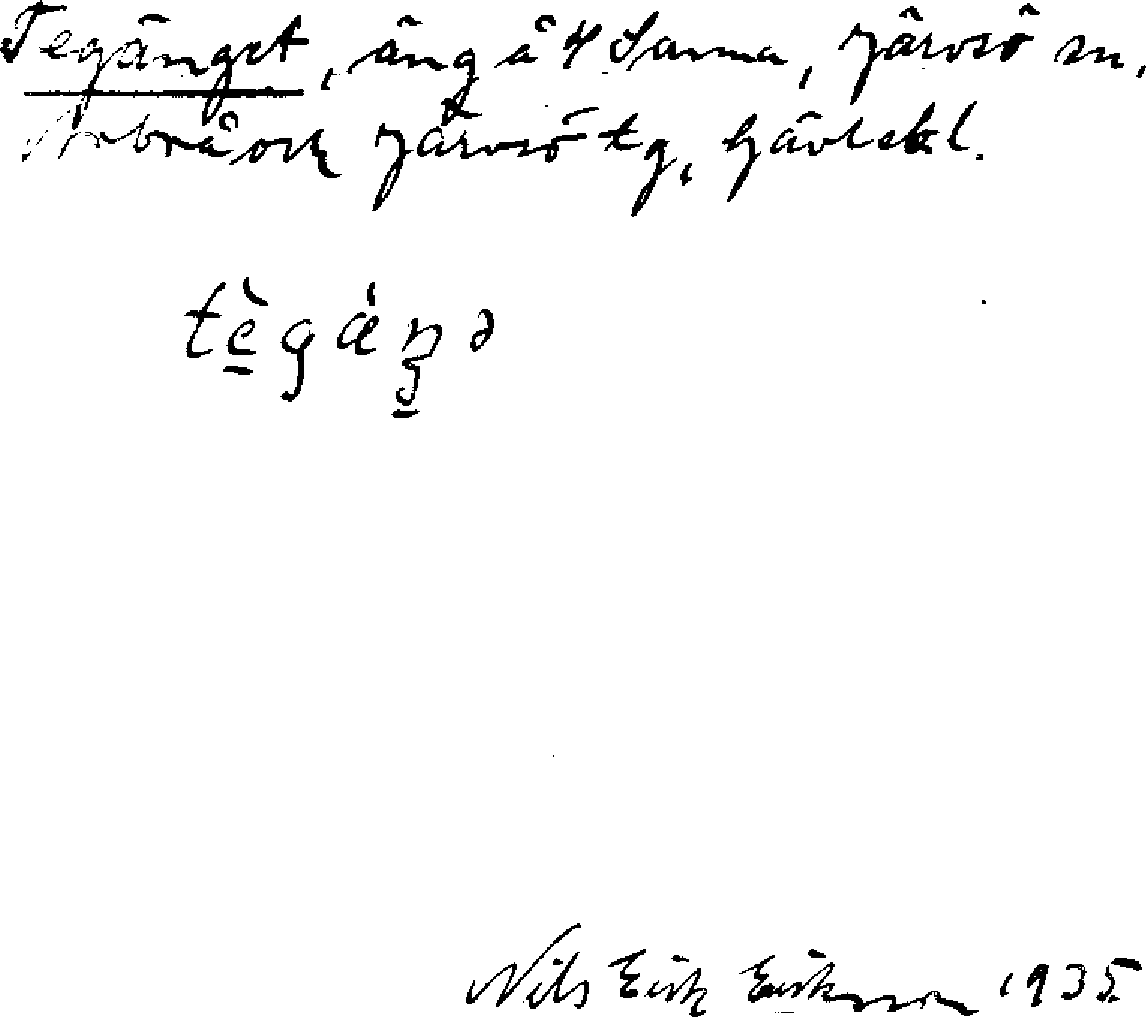 Tegänget, äng å 4 Sanna, Järvsö sn,
Arbrå och Järvsö tg, Gävlebl.
tè̲gä́ŋ̲ə
Nils Erik Eriksson 1935.